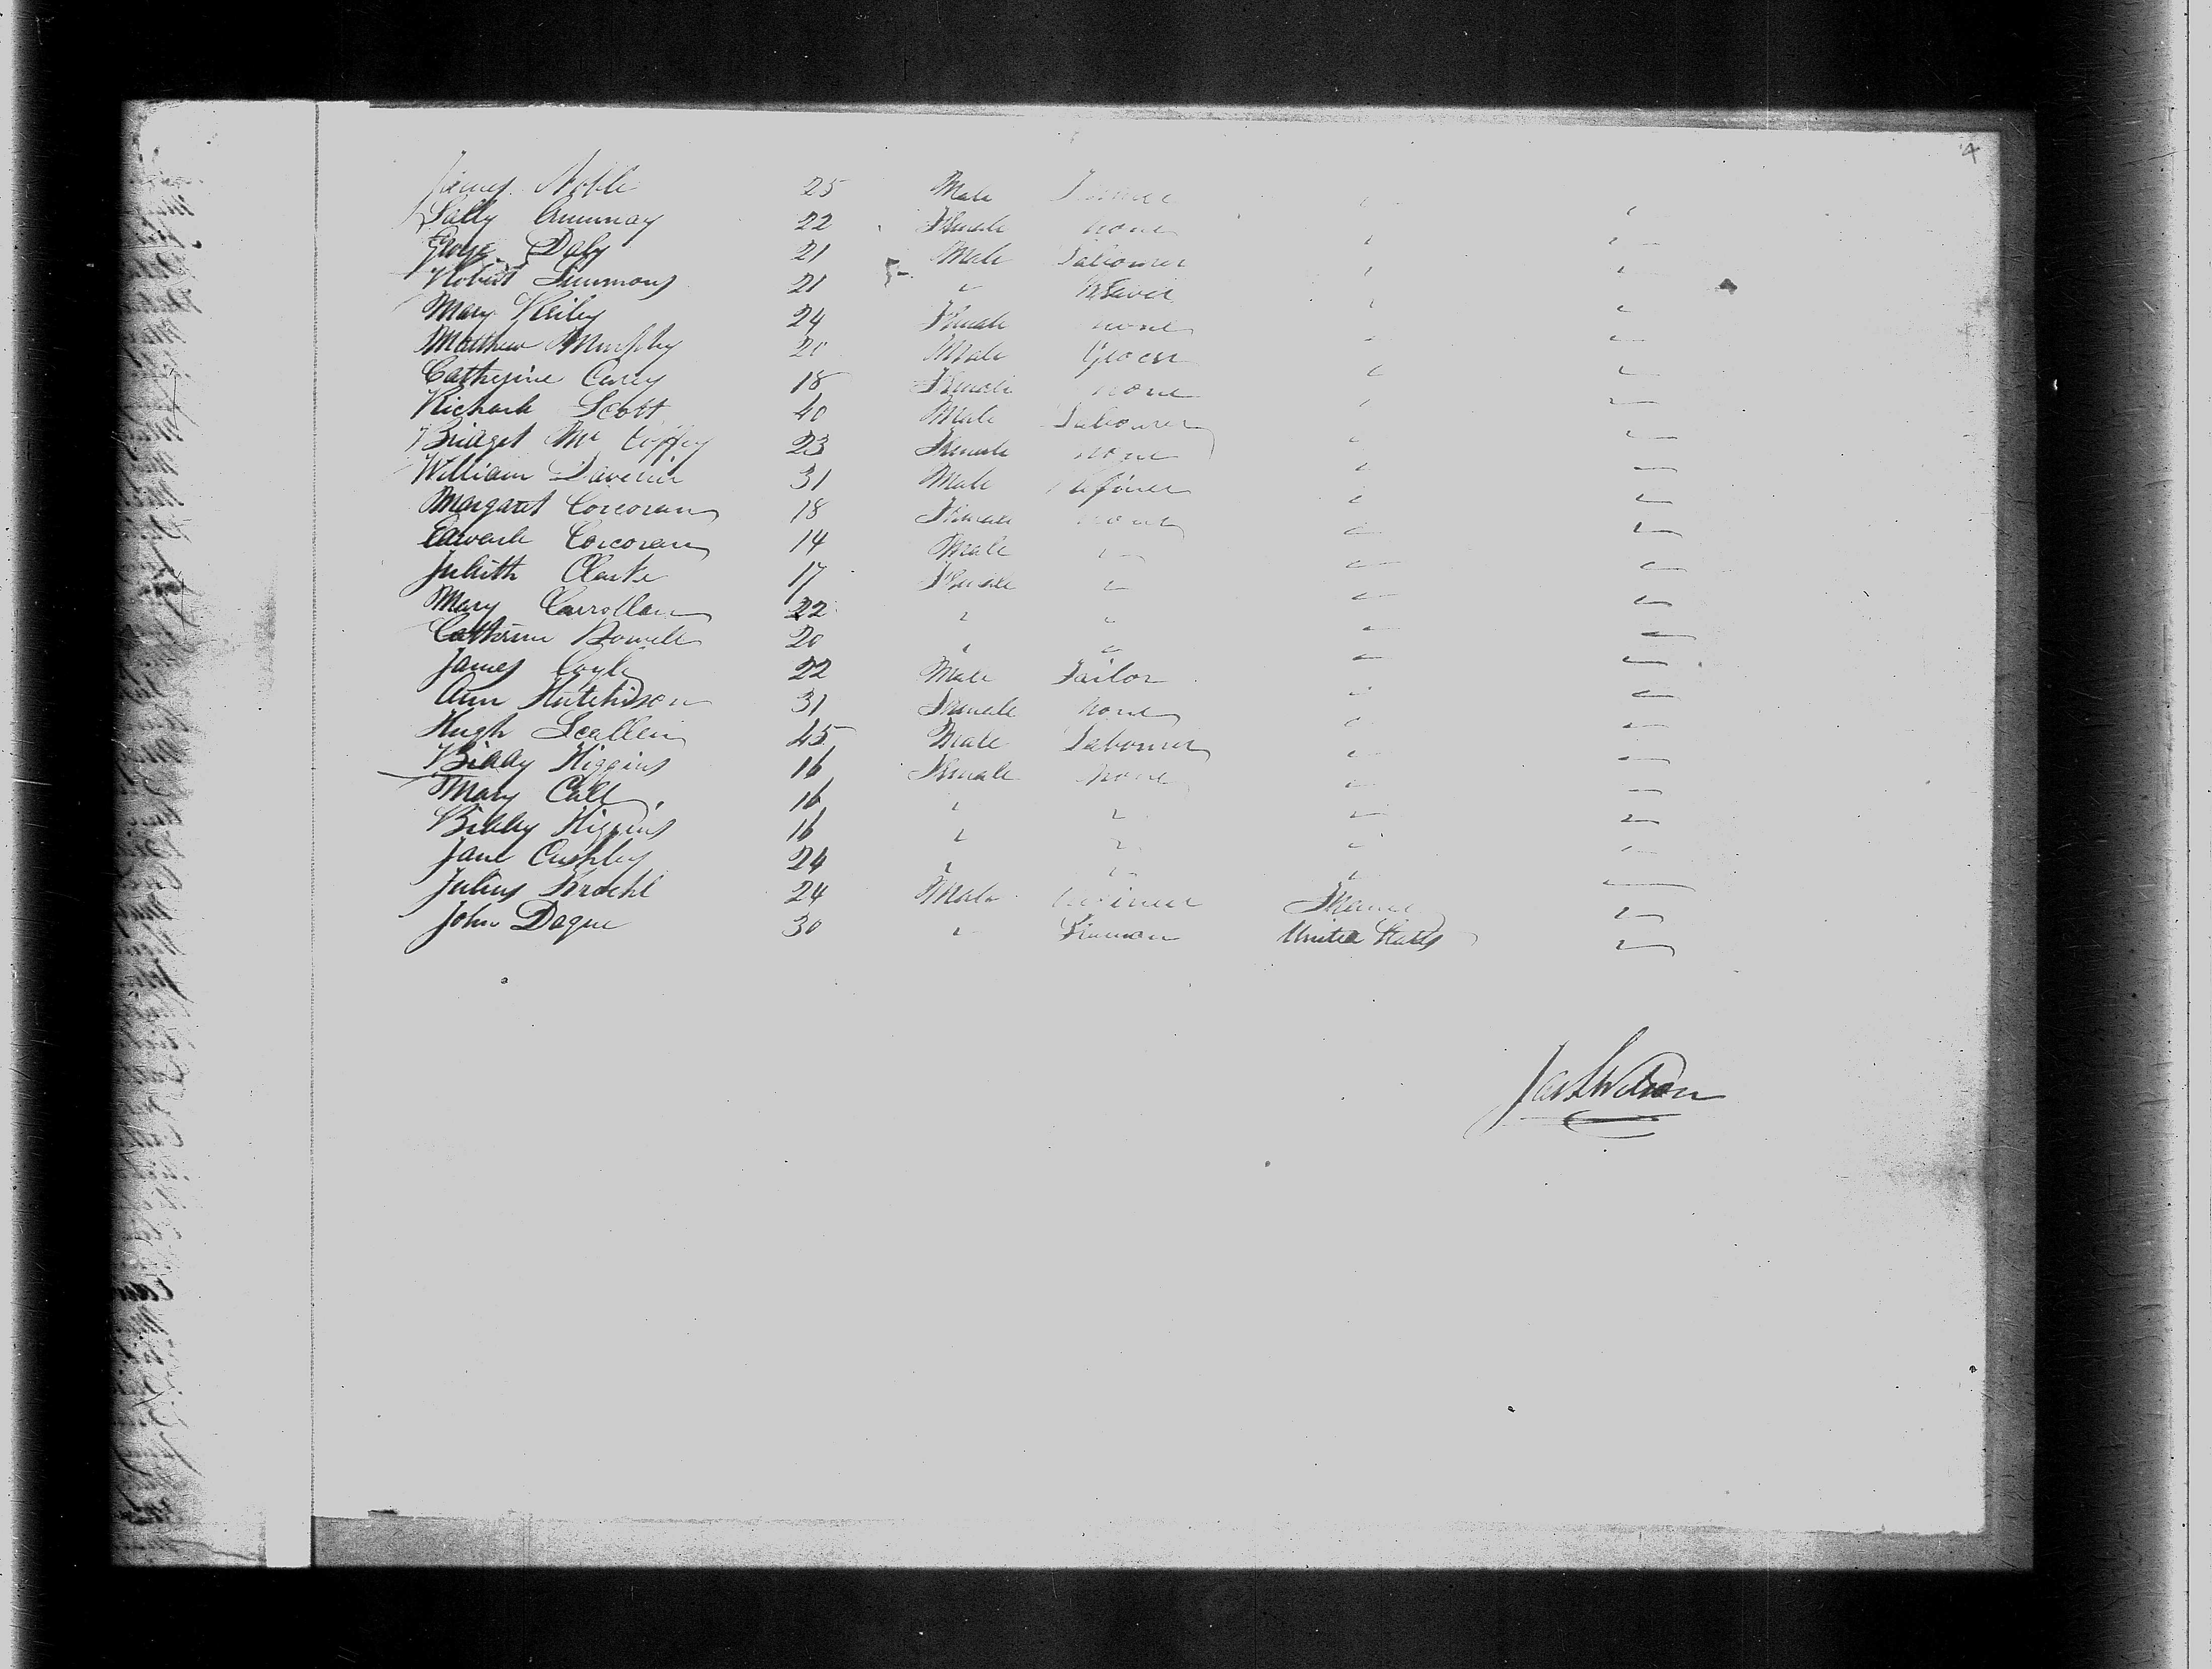 4
James Noble 25 Male Farmer " "
Sally 22 Female none " "
George Daly 21 Male Labourer " "
Robert Simmons 21 " Weaver " "
Mary Reiley 24 Female none " "
Matthew Murphy 20 Male Grocer " "
Catherine Carey 18 Female none " "
Richard Scott 40 Male Labourer " "
Bridget Mc Coffey 23 Female none " "
William 31 Male " "
Margaret Corcoran 18 Female none " "
Edward Corcoran 14 Male " " "
Judith Clarke 17 Female " " "
Mary Carrollan 22 " " " "
Catherine 20 " " " "
James Coyle 22 Male Tailor " "
Ann Hutchison 31 Female none " "
Hugh Scallen 45 Male Labourer " "
Biddy Higgins 16 Female none " "
Mary Call 16 " " " "
Biddy Higgins 16 " " " "
Jane 24 " " " "
Julius Kroehl 24 Male "
John Dague 30 " United States "
Jas L Wilson